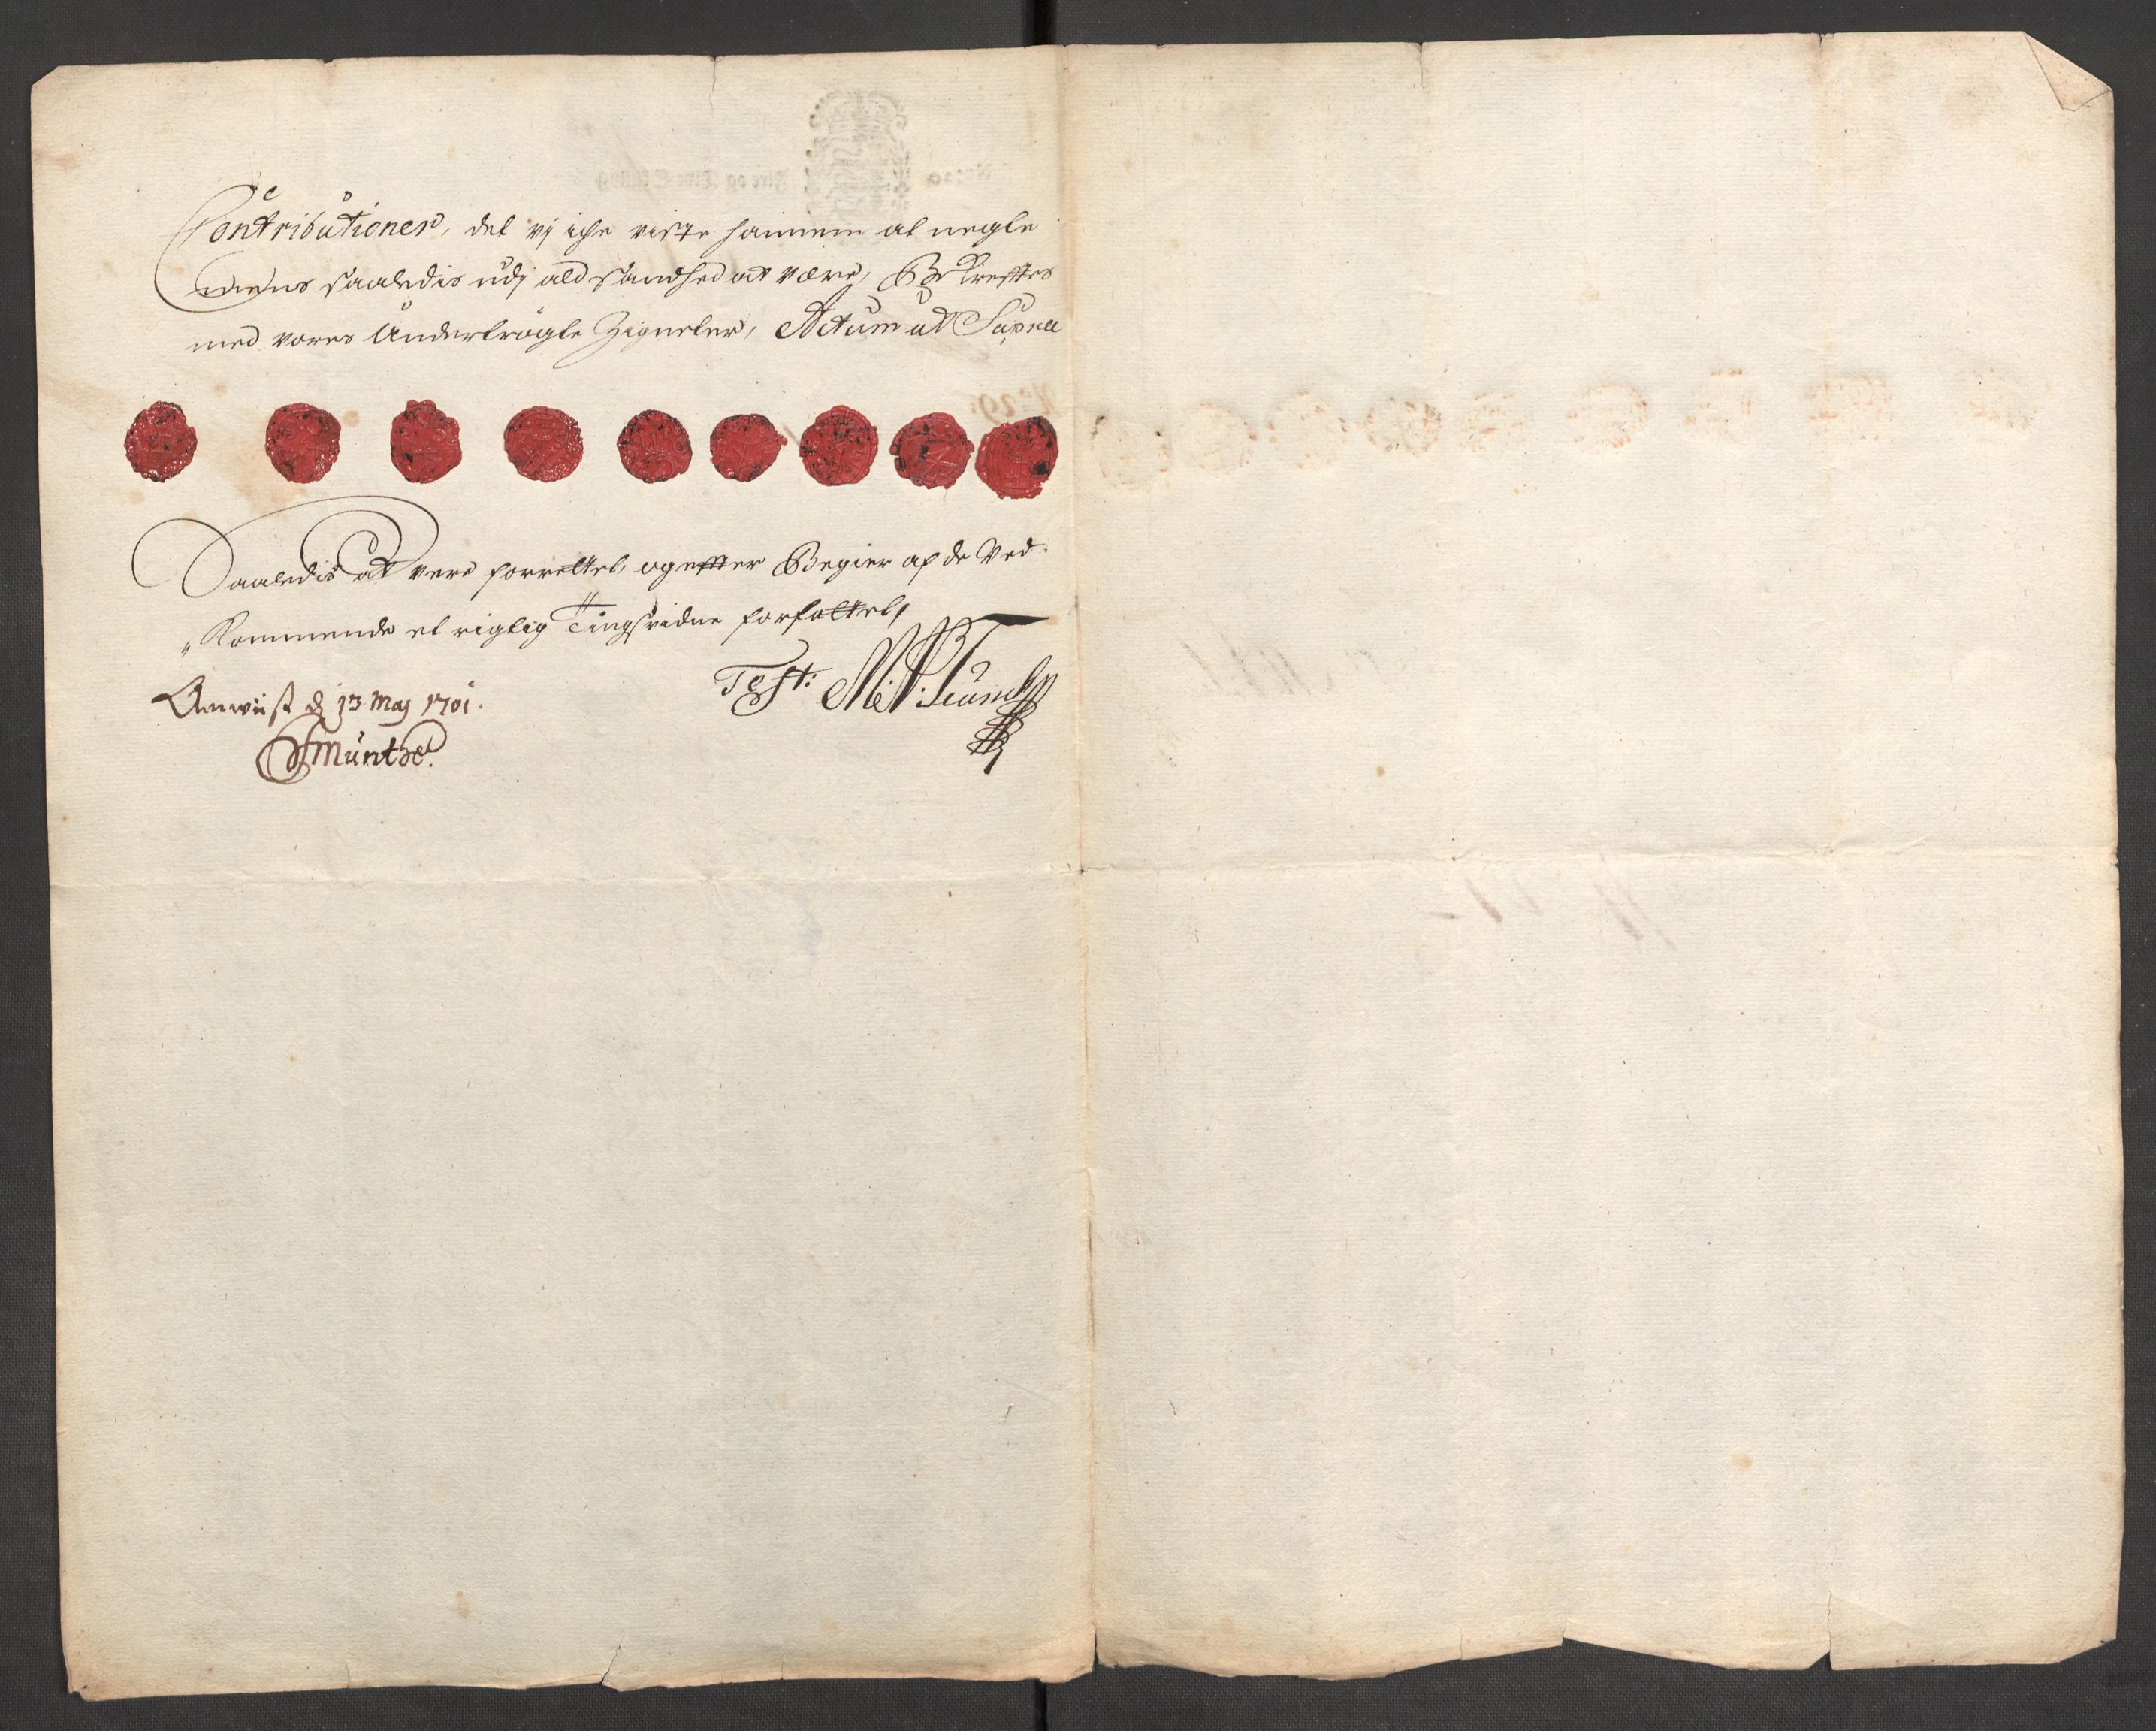 Contributioner, det vj iche viste hannem at negte
mens saaledis udj ald sandhed at være, Bekreftes
med vores Undertrögte Zigneter, Actum ut Supra
Saaledis at vere forrettet, og effter Begier af de Ved¬
„Kommende et rigtig Tingsvidne forfattet,
Test:
Anwiist d 13 Maj 1701.
Munthe.